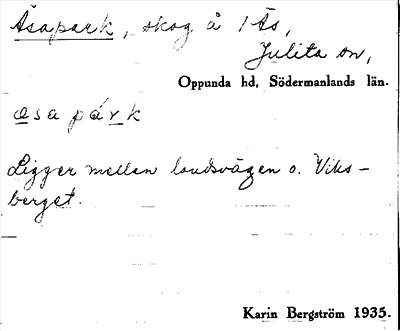 Åsapark, skog å 1 Ås,
Julita sn,
Oppunda hd, Södermanlands län.
ɷsa párk
Ligger mellan landsvägen o. Viks-
berget.
Karin Bergström 1935.